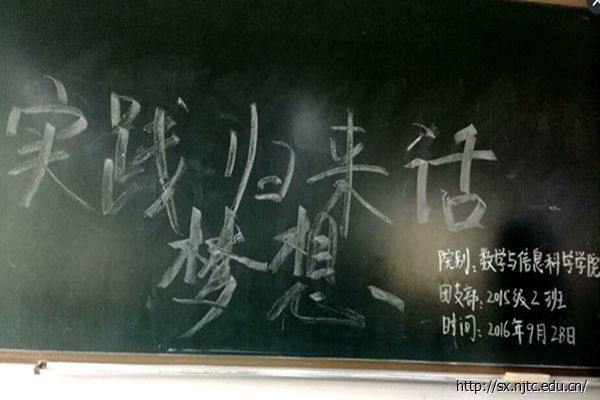 实践归来话
梦想
院别：数学与信息科学学院
团支部：2015级2班
时间：2016年9月28日
http://sx.njtc.edu.cn/